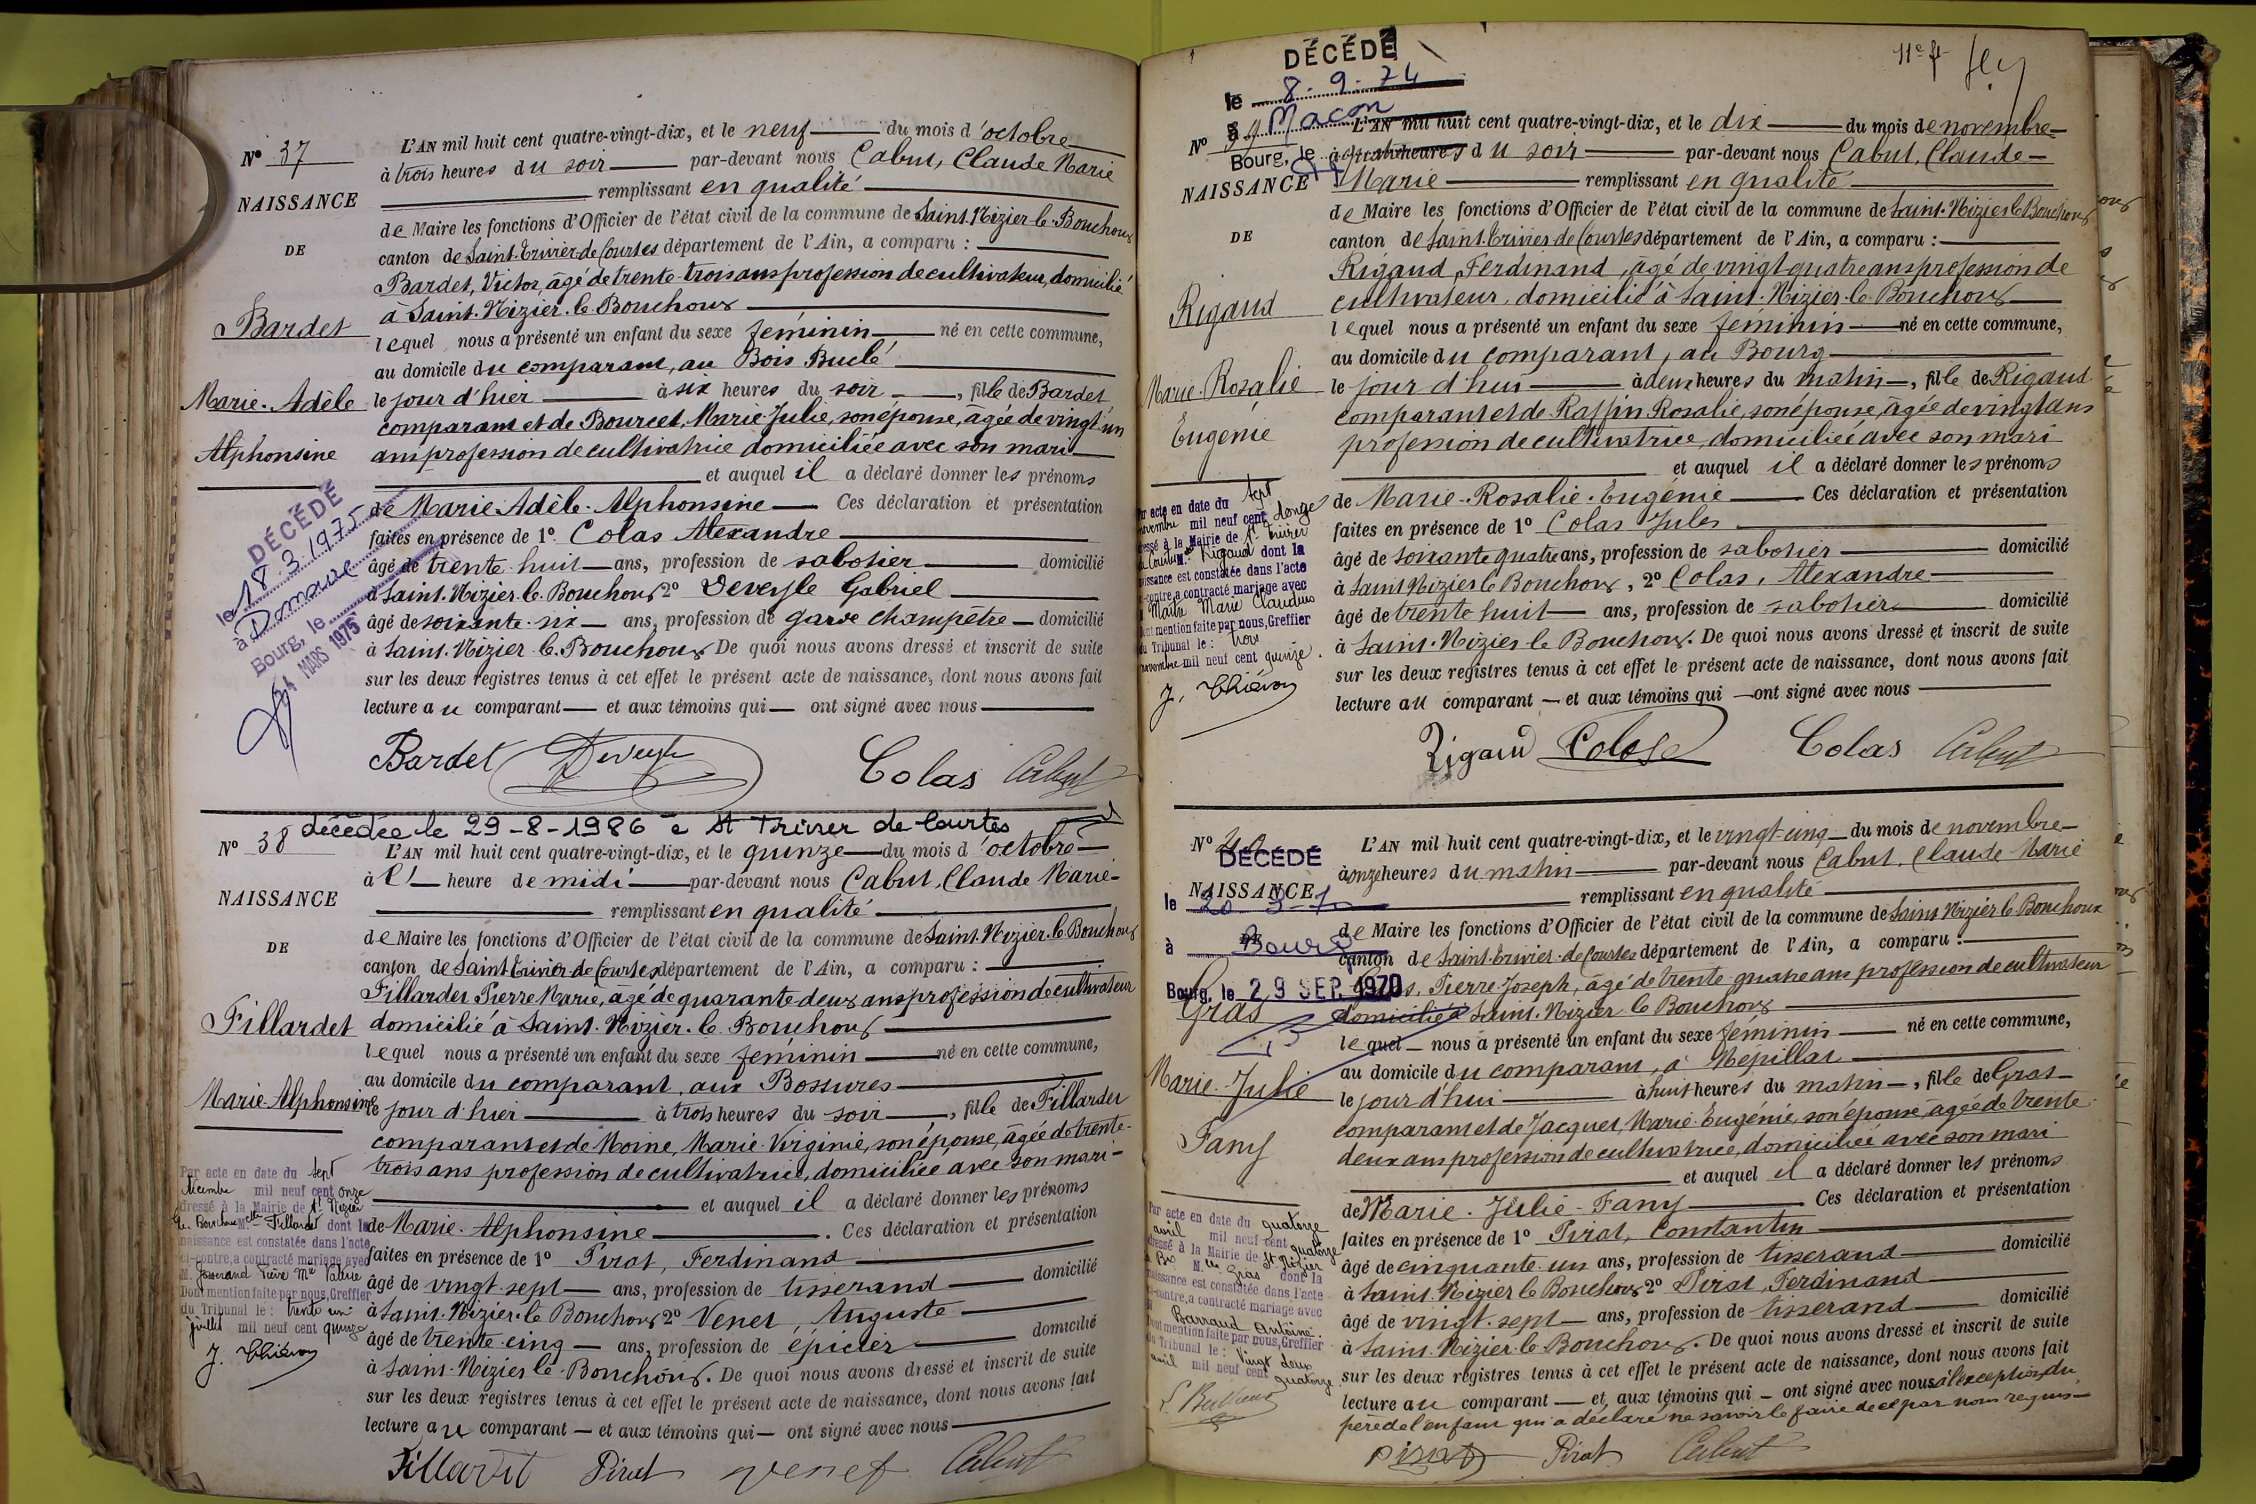 N° 37
NAISSANCE
DE
Bardet
Marie-Adèle
Alphonsine
DÉCÉDÉ
le 18.3.1975
à Domaure
Bourg, le
MARS 1975
L'AN mil huit cent quatre-vingt-dix, et le neuf du mois d'octobre
à trois heures du soir par-devant nous Cabut, Claude Marie
remplissant en qualité
de Maire les fonctions d'Officier de l'état civil de la commune de Saint-Nizier-le-Bouchoux
canton de Saint-Trivier-de-Courtes département de l'Ain, a comparu :
Bardet, Victor, âgé de trente-trois ans profession de cultivateur, domicilié
à Saint-Nizier-le-Bouchoux
lequel nous a présenté un enfant du sexe féminin né en cette commune,
au domicile du comparant, au Bois Buclé
le jour d'hier à six heures du soir, fille de Bardet
comparant et de Bourcet, Marie-Julie, son épouse, âgée de vingt-un
ans profession de cultivatrice domiciliée avec son mari
et auquel il a déclaré donner les prénoms
de Marie-Adèle-Alphonsine Ces déclaration et présentation
faites en présence de 1° Colas Alexandre
âgé de trente-huit ans, profession de sabotier domicilié
à Saint-Nizier-le-Bouchoux 2° Deveyle Gabriel
âgé de soixante-six ans, profession de garde champêtre domicilié
à Saint-Nizier-le-Bouchoux De quoi nous avons dressé et inscrit de suite
sur les deux registres tenus à cet effet le présent acte de naissance, dont nous avons fait
lecture au comparant et aux témoins qui ont signé avec nous
Bardet Deveyle Colas Cabut
décédée le 29-8-1986 à St Trivier de Courtes
N° 38
NAISSANCE
DE
Fillardet
Marie-Alphonsine
Par acte en date du sept
décembre mil neuf cent onze
dressé à la Mairie de St Nizier
le Bouchoux Melle Fillardet dont la
naissance est constatée dans l'acte
ci-contre, a contracté mariage avec
M. Josserand Pierre Mie Valérie
Dont mention faite par nous, Greffier
du Tribunal le : trente un
juillet mil neuf cent quinze
L'AN mil huit cent quatre-vingt-dix, et le quinze du mois d'octobre
à l' heure de midi par-devant nous Cabut, Claude Marie
remplissant en qualité
de Maire les fonctions d'Officier de l'état civil de la commune de Saint-Nizier-le-Bouchoux
canton de Saint-Trivier-de-Courtes département de l'Ain, a comparu :
Fillardet Pierre Marie, âgé de quarante-deux ans profession de cultivateur
domicilié à Saint-Nizier-le-Bouchoux
lequel nous a présenté un enfant du sexe féminin né en cette commune,
au domicile du comparant, aux Bossures
le jour d'hier à trois heures du soir, fille de Fillardet
comparant et de Moine, Marie-Virginie, son épouse, âgée de trente-
trois ans profession de cultivatrice, domiciliée avec son mari
et auquel il a déclaré donner les prénoms
de Marie-Alphonsine. Ces déclaration et présentation
faites en présence de 1° Pirat, Ferdinand
âgé de vingt-sept ans, profession de tisserand domicilié
à Saint-Nizier-le-Bouchoux 2° Venet, Auguste
âgé de trente-cinq ans, profession de épicier domicilié
à Saint-Nizier-le-Bouchoux. De quoi nous avons dressé et inscrit de suite
sur les deux registres tenus à cet effet le présent acte de naissance, dont nous avons fait
lecture au comparant et aux témoins qui ont signé avec nous
Fillardet Pirat Venet Cabut
11e ft
DÉCÉDÉ
le 8.9.74
à Macon
Bourg, le
N° 39
NAISSANCE
DE
Rigaud
Marie-Rosalie
Eugénie
Par acte en date du sept
novembre mil neuf cent donze
dressé à la Mairie de St Trivier
de Courtes Melle Rigaud dont la
naissance est constatée dans l'acte
ci-contre, a contracté mariage avec
M. Maitre Marie Claudius
Dont mention faite par nous, Greffier
du Tribunal le : trois
novembre mil neuf cent quinze.
L'AN mil huit cent quatre-vingt-dix, et le dix du mois de novembre
à quatre heures du soir par-devant nous Cabut, Claude
Marie remplissant en qualité
de Maire les fonctions d'Officier de l'état civil de la commune de Saint-Nizier-le-Bouchoux
canton de Saint-Trivier-de-Courtes département de l'Ain, a comparu :
Rigaud, Ferdinand, âgé de vingt-quatre ans profession de
cultivateur, domicilié à Saint-Nizier-le-Bouchoux
lequel nous a présenté un enfant du sexe féminin né en cette commune,
au domicile du comparant, au Bourg
le jour d'hui à deux heures du matin, fille de Rigaud
comparant et de Raffin Rosalie, son épouse, âgée de vingt ans
profession de cultivatrice, domiciliée avec son mari
et auquel il a déclaré donner les prénoms
de Marie-Rosalie-Eugénie Ces déclaration et présentation
faites en présence de 1° Colas Jules
âgé de soixante quatre ans, profession de sabotier domicilié
à Saint-Nizier-le-Bouchoux, 2° Colas, Alexandre
âgé de trente huit ans, profession de sabotier domicilié
à Saint-Nizier-le-Bouchoux. De quoi nous avons dressé et inscrit de suite
sur les deux registres tenus à cet effet le présent acte de naissance, dont nous avons fait
lecture au comparant et aux témoins qui ont signé avec nous
Rigaud Colas Colas Cabut
N° 40
DÉCÉDÉ
NAISSANCE
le 20
à Bourg
Bourg, le 29 SEP. 1970
Gras
Marie-Julie
Fany
Par acte en date du quatorze
avril mil neuf cent quatorze
dressé à la Mairie de St Nizier
le Bx Melle Gras dont la
naissance est constatée dans l'acte
ci-contre, a contracté mariage avec
M. Barraud Antoine.
Dont mention faite par nous, Greffier
du Tribunal le : Vingt deux
avril mil neuf cent quatorze.
L'AN mil huit cent quatre-vingt-dix, et le vingt-cinq du mois de novembre
à onze heures du matin par-devant nous Cabut, Claude Marie
remplissant en qualité
de Maire les fonctions d'Officier de l'état civil de la commune de Saint-Nizier-le-Bouchoux
canton de Saint-Trivier-de-Courtes département de l'Ain, a comparu :
Gras, Pierre-Joseph, âgé de trente-quatre ans profession de cultivateur
domicilié à Saint-Nizier-le-Bouchoux
lequel nous a présenté un enfant du sexe féminin né en cette commune,
au domicile du comparant, à Mépillat
le jour d'hui à huit heures du matin, fille de Gras
comparant et de Jacquet, Marie-Eugénie, son épouse âgée de trente-
deux ans profession de cultivatrice, domiciliée avec son mari
et auquel il a déclaré donner les prénoms
de Marie-Julie-Fany Ces déclaration et présentation
faites en présence de 1° Pirat, Constantin
âgé de cinquante-un ans, profession de tisserand domicilié
à Saint-Nizier-le-Bouchoux 2° Pirat, Ferdinand
âgé de vingt-sept ans, profession de tisserand domicilié
à Saint-Nizier-le-Bouchoux. De quoi nous avons dressé et inscrit de suite
sur les deux registres tenus à cet effet le présent acte de naissance, dont nous avons fait
lecture au comparant et aux témoins qui ont signé avec nous à l'exception du
père de l'enfant qui a déclaré ne savoir le faire de ce par nous requis
Pirat Pirat Cabut